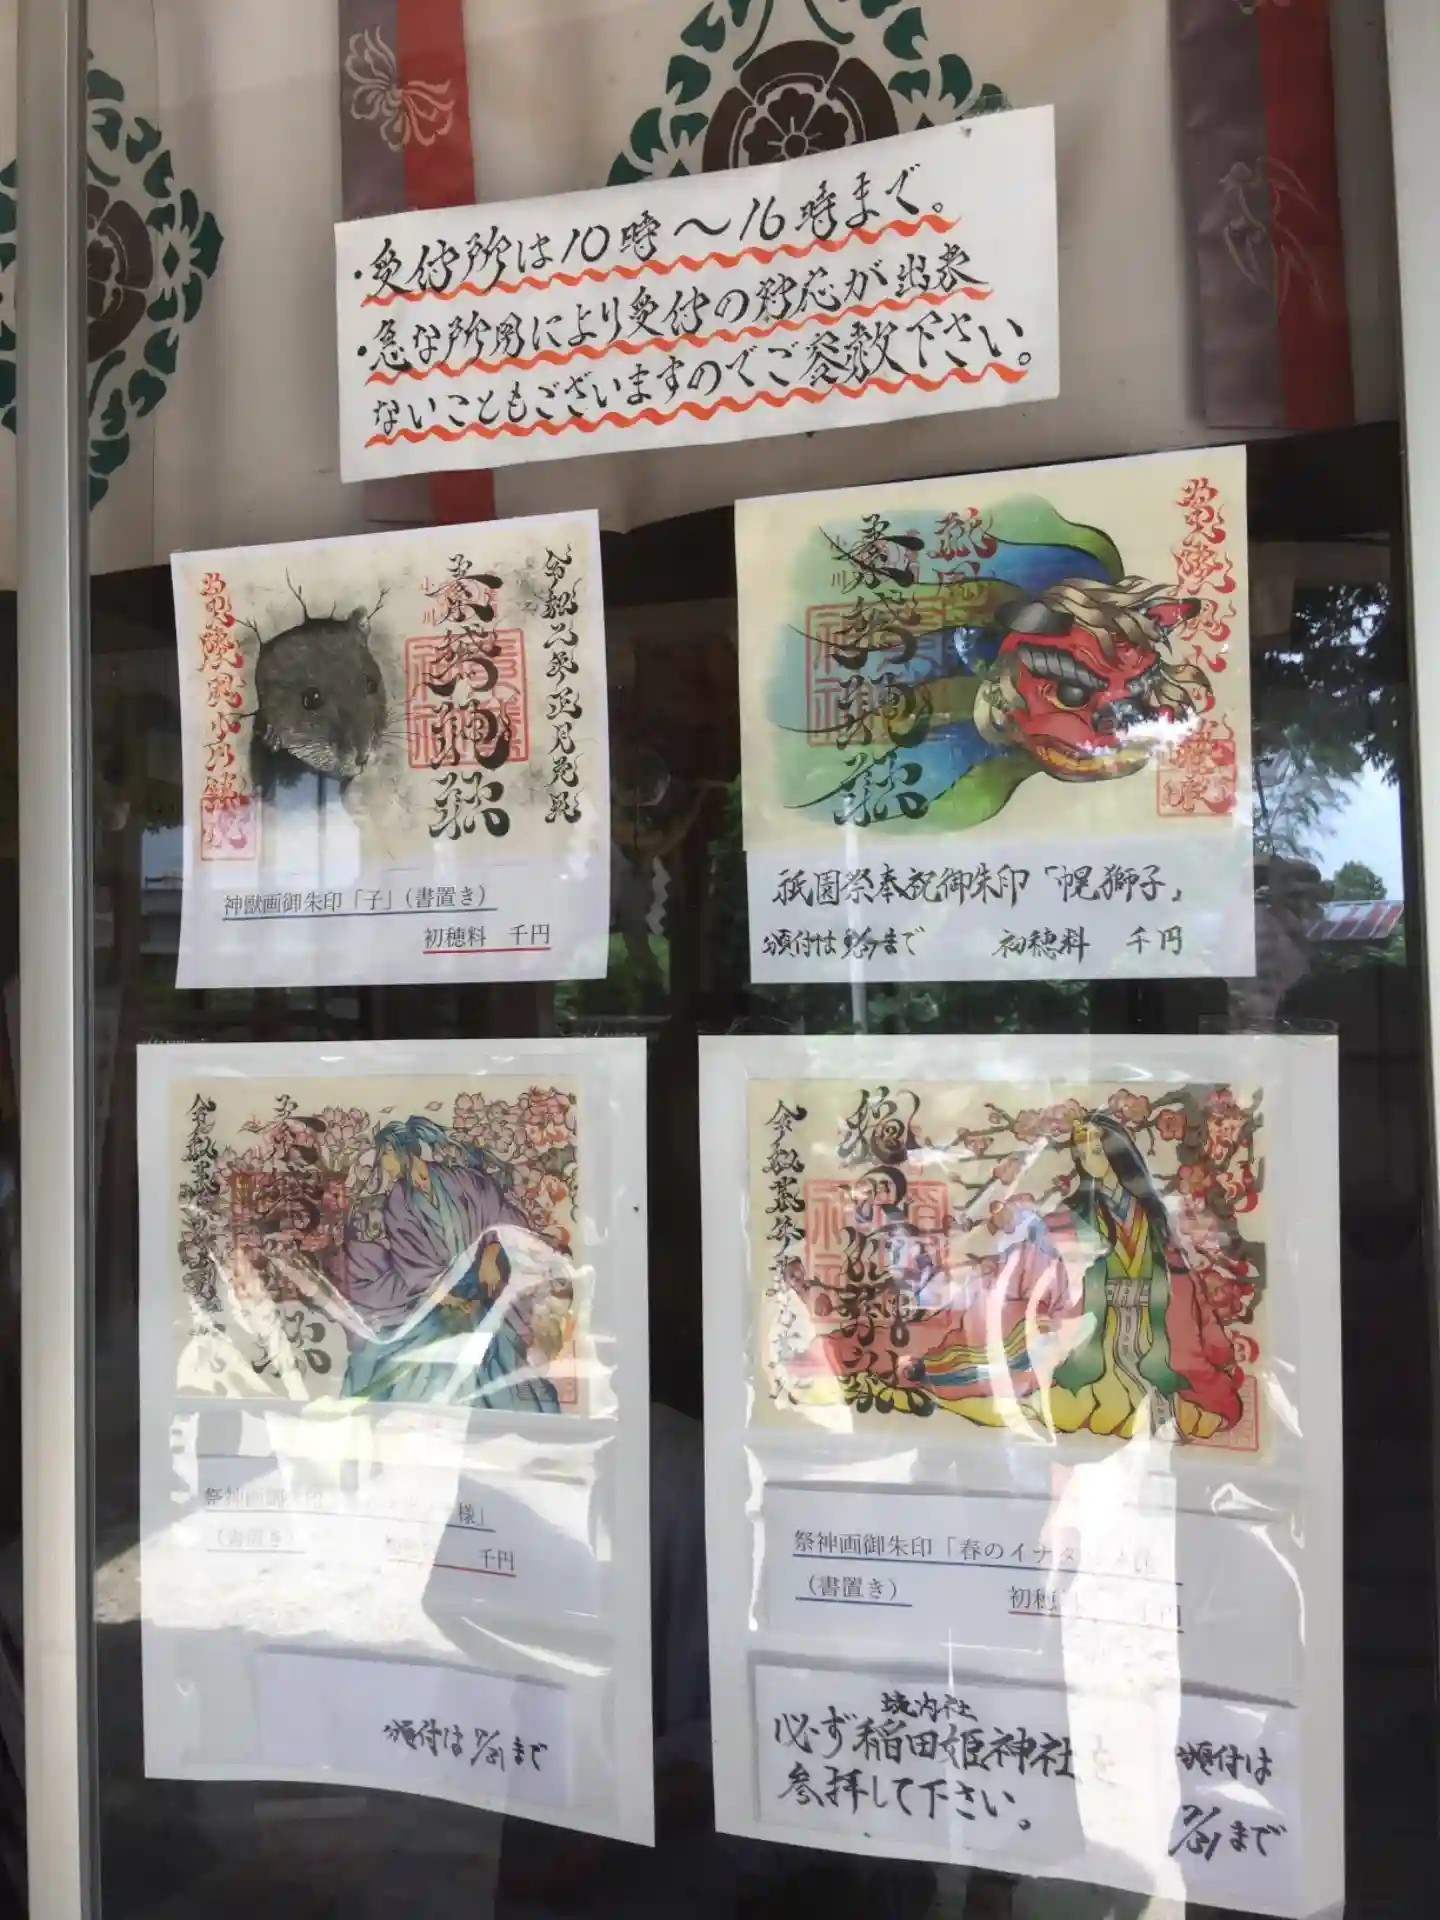 ・受付所は10時〜16時まで。
・急な所用により受付の対応が出来
ないこともございますのでご容赦下さい。
令和二年正月元旦
素鵞神社
小川
常陸国小川鎮守
神獣画御朱印「子」(書置き)
初穂料 千円
祇園
素鵞神社
小川
祇園祭奉祝御朱印「幌獅子」
頒付は
まで 初穂料 千円
素鵞神社
祭神画御朱印
様」
(書置き)
千円
頒付は7/31まで
稲田姫神社
祭神画御朱印「春のイナダ
(書置き) 初穂
千円
境内社
必ず稲田姫神社を
参拝して下さい。
頒付は
7/31まで